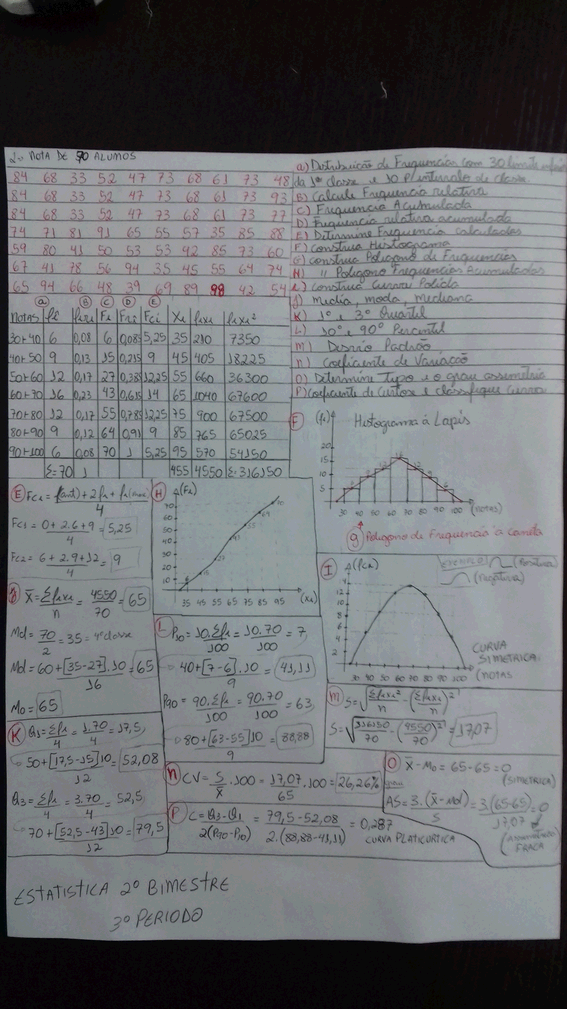 2- NOTA DE 70 ALUMOS
84 68 33 52 47 73 68 61 73 48
84 68 33 52 47 73 68 61 73 93
84 68 33 52 47 73 68 61 73 77
74 71 81 91 65 55 57 35 85 88
59 80 41 50 53 53 42 85 73 60
67 41 78 56 94 35 45 55 64 74
65 94 66 48 39 69 89 98 42 54
a) Distribuição de Frequencias com 30 limite
da 1ª classe e 10 P/ intervalo de classe
B) Calcule Frequencia relativa
C) Frequencia Acumulada
D) Frequencia relativa acumulada
E) Determine Frequencia calculadas
F) construa Histograma
G) construa Poligono de Frequencias
H) " Poligono Frequencias Acumuladas
I) construa Curva Polida
J) media, moda, mediana
K) 1º e 3º Quartil
L) 10º e 90º Percentil
M) Desvio Padrão
N) Coeficiente de Variação
O) Determine tipo e o grau assimetria
P) Coeficiente de Curtose e classifique Curva
a B C D E
NOTAS fi fri Fi Fri Fci Xi fixi fixi²
30+40 6 0,08 6 0,085 5,25 35 210 7350
40+50 9 0,13 15 0,215 9 45 405 18225
50+60 12 0,17 27 0,385 12,25 55 660 36300
60+70 16 0,23 43 0,615 14 65 1040 67600
70+80 12 0,17 55 0,785 12,25 75 900 67500
80+90 9 0,12 64 0,91 9 85 765 65025
90+100 6 0,08 70 1 5,25 95 570 54150
Σ=70 1 455 4550 Σ=316150
F (fi) Histograma á Lapis
20
15
10
5
30 40 50 60 70 80 90 100 (NOTAS)
g Poligono de Frequencia á Caneta
E Fci = f(ant)+2fi+fi(
4
Fc1 = 0+2.6+9 = 5,25
4
Fc2 = 6+2.9+12 = 9
4
H (Fi)
70
60
50
40
30
20
10
35 45 55 65 75 85 95 (Xi)
I (Fci)
14
12
10
8
6
4
2
30 40 50 60 70 80 90 100 (NOTAS
(Positiva)
(Negativa)
CURVA
SIMETRICA
J X̄ = Σfixi = 4550 = 65
n 70
Md = 70 = 35 = 4ª classe
2
Md = 60+[35-27].10 = 65
16
Mo = 65
L P10 = 10.Σfi = 10.70 = 7
100 100
40+[7-6].10 = 41,11
9
P90 = 90.Σfi = 90.70 = 63
100 100
80+[63-55]10 = 88,88
9
M S=√Σfixi² - (Σfixi)²
n n
S=√316150 - (4550)² = 17,07
70 70
K Q1 = Σfi = 1.70 = 17,5
4 4
50+[17,5-15]10 = 52,08
12
Q3 = Σfi = 3.70 = 52,5
4 4
70+[52,5-43]10 = 79,5
12
N CV = S .100 = 17,07 .100 = 26,26%
X̄ 65
O X̄-Mo = 65-65=0
(SIMETRICA)
grau
AS=3.(X̄-Md) = 3(65-65) = 0
S 17,07
FRACA
P C=Q3-Q1 = 79,5-52,08 = 0,287
2(P90-P10) 2.(88,88-41,11) CURVA PLATICURTICA
ESTATISTICA 2º BIMESTRE
3º PERIODO